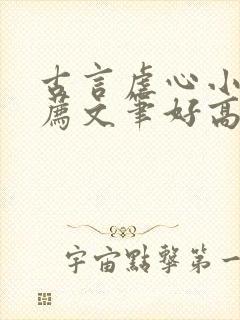 古言虐心小
薦文筆好高
宇宙點擊第一